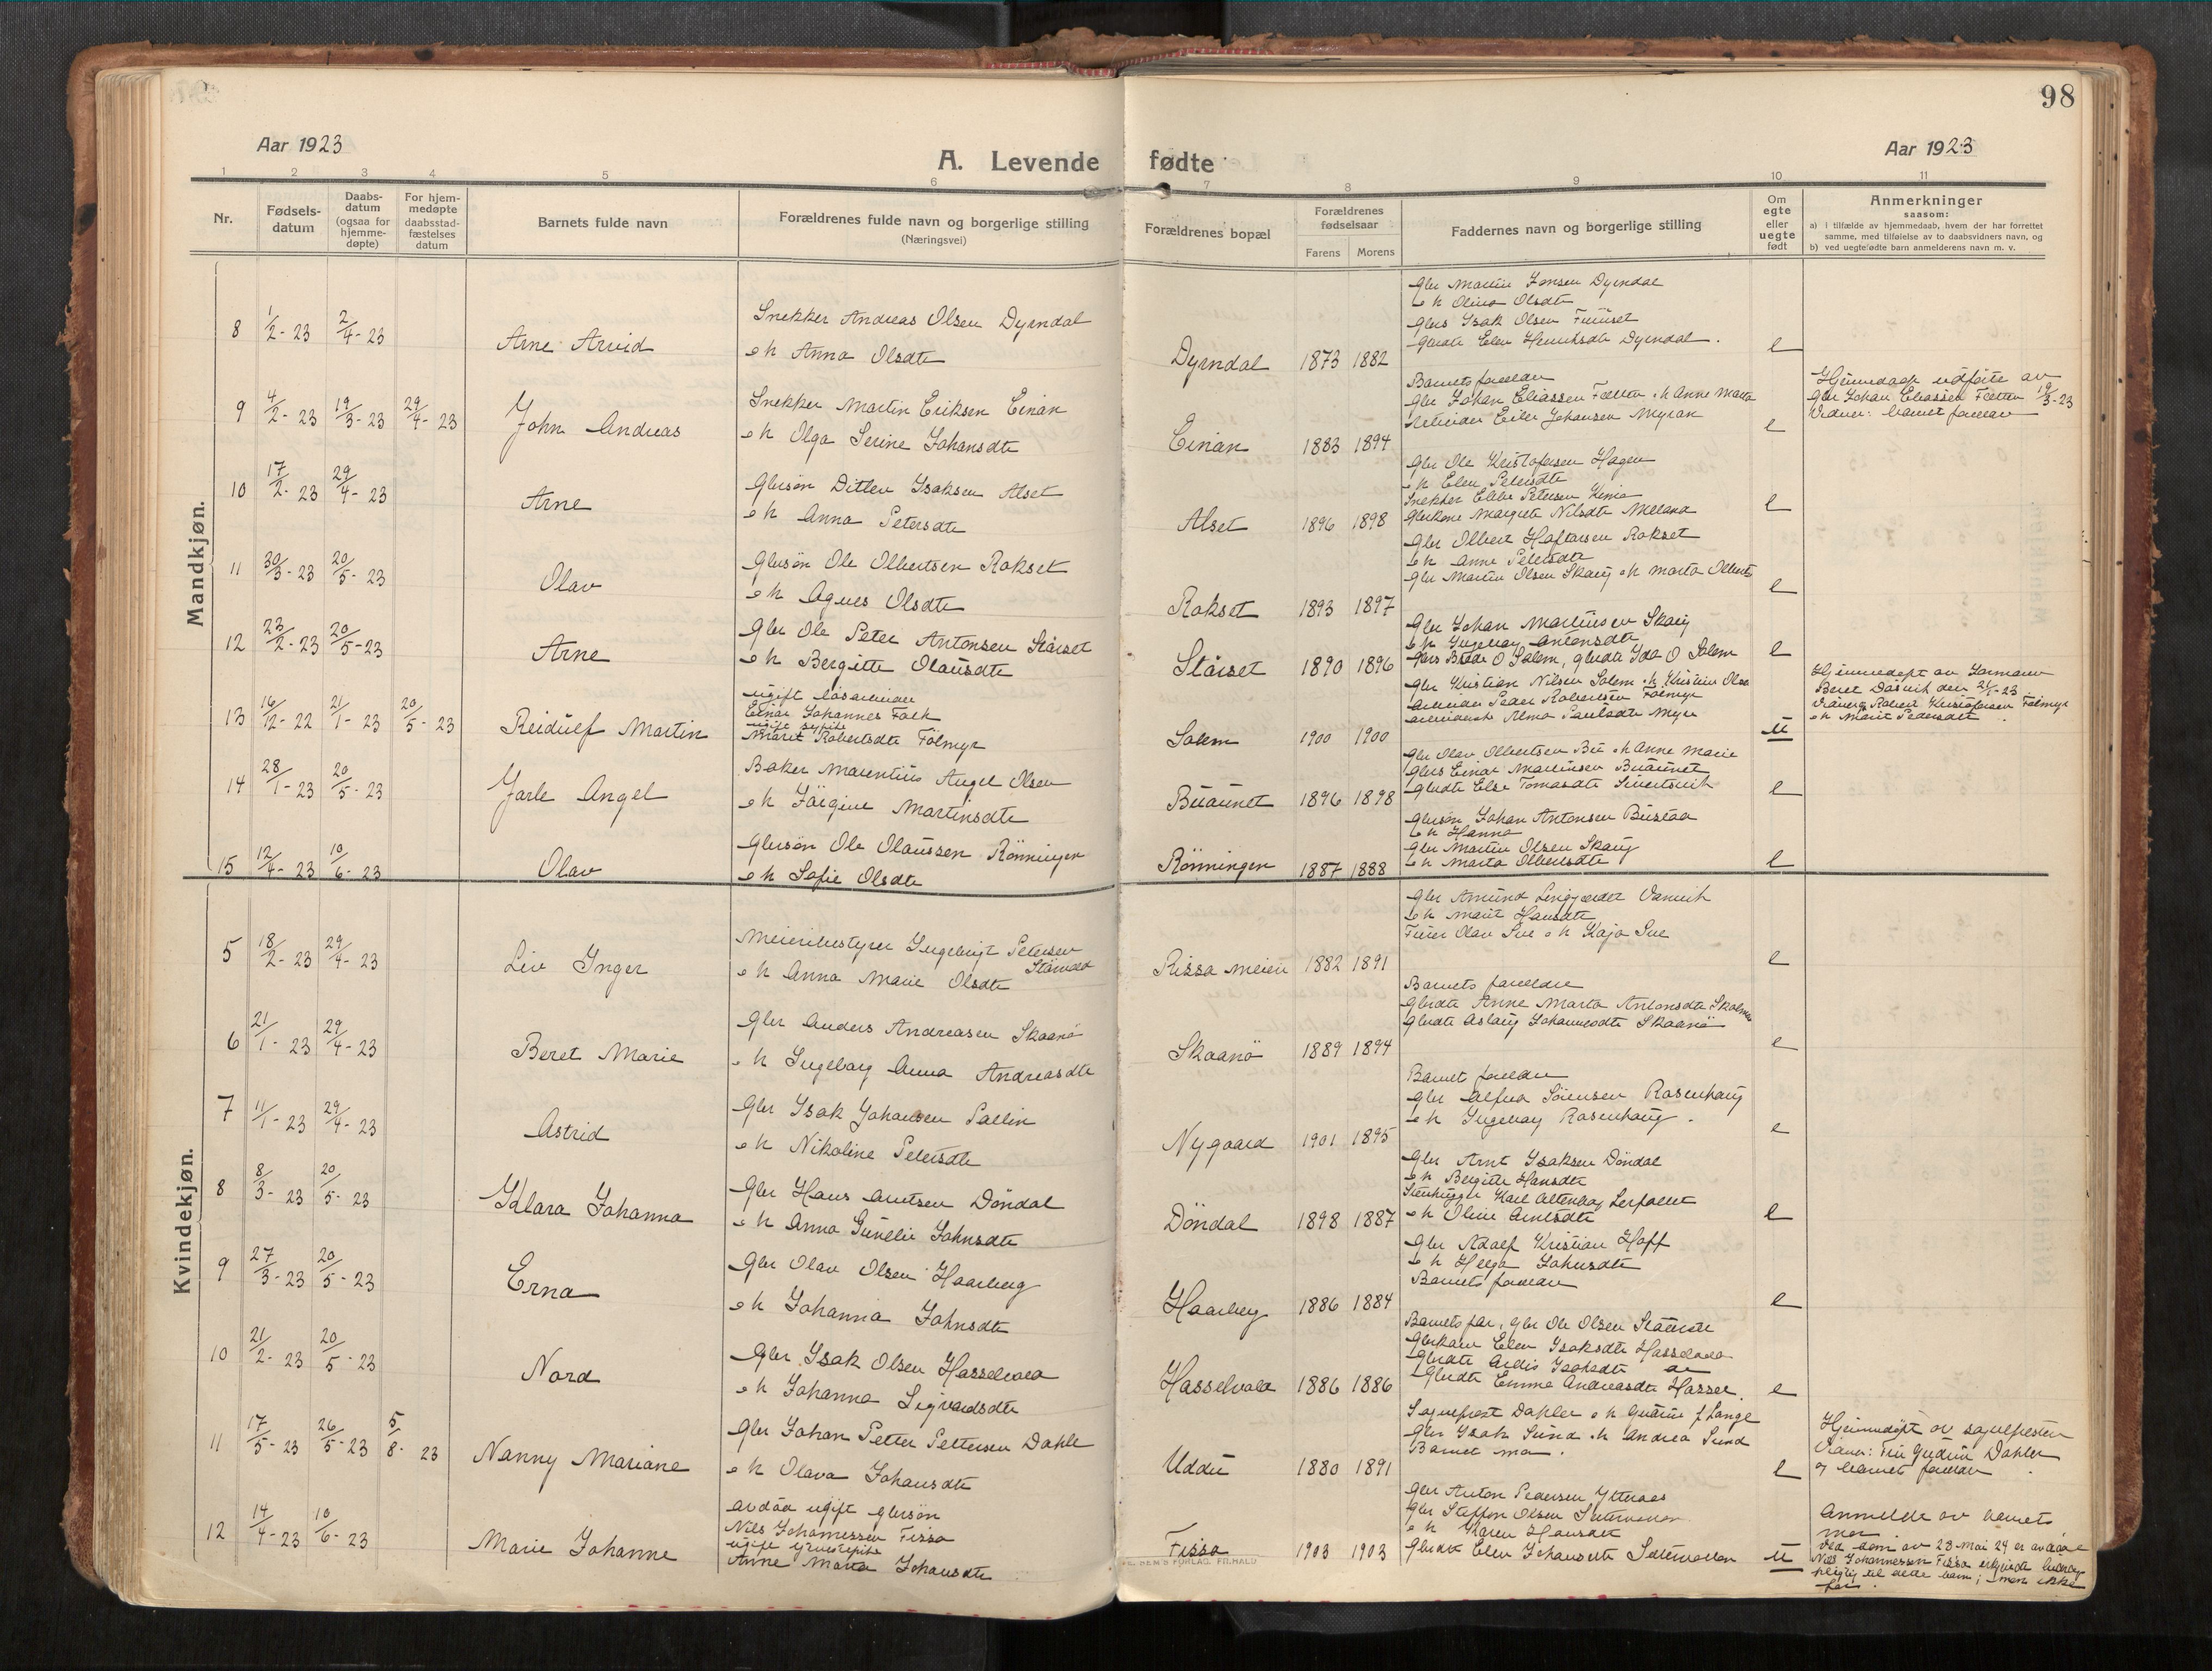 98
Aar 1923
A. Levende fødte
Aar 1923
1 2 3 4 5 6 7 8 9 10 11
Nr.
Fødsels-
datum
Daabs-
datum
(ogsaa for
hjemme-
døpte)
For hjem-
medøpte
daabsstad-
fæstelses
datum
Barnets fulde navn
Forældrenes fulde navn og borgerlige stilling
(Næringsvei)
Forældrenes bopæl
Forældrenes
fødselsaar
Farens Morens
Faddernes navn og borgerlige stilling
Om
egte
eller
uegte
født
Anmerkninger
saasom:
a) i tilfælde av hjemmedaab, hvem der har forrettet
samme, med tilføielse av to daabsvidners navn, og
b) ved uegtefødte barn anmelderens navn m. v.
Mandkjøn.
8 1/2-23 2/4-23 Arne Arvid
Snekker Andreas Olsen Dyrndal
o h Anna Olsdtr
Dyrndal 1873 1882
Gbr Martin Jensen Dyrndal
o h Olina Olsdtr
Gbrs Isak Olsen
Gbrdtr Elen Henriksdtr Dyrndal.
e
9 4/2-23 19/3-23 29/4-23 John Andreas
Snekker Martin Eriksen Einan
o h Olga Serine Johansdtr
Einan 1883 1894
Barnets foreldre
Gbr Johan Eliassen o h Anne Marta
Johansen Myran
e
Hjemmedaab utført av
Gbr Johan Eliassen 19/3-23
Vidner: barnets foreldre
10 17/2-23 29/4-23 Arne
Gbrsøn Ditlev Isaksen Alset
o h Anna Petersdtr
Alset 1896 1898
Gbr Ole Kristofersen Hagen
o h Elen Petersdtr
Snekker Petersen
Gbrkone Margrete Nilsdtr
e
11 30/3-23 20/5-23 Olav
Gbrsøn Ole Olbertsen Rokset
o h Agnes Olsdtr
Rokset 1893 1897
Gbr Olbert Haftorsen Rokset
o h Anne Petersdtr
Gbr Martin Olsen Skaug o h Marta Olbertsdtr
e
12 23/2-23 20/5-23 Arne
Gbr Ole Peter Antonsen Størset
o h Bergitte Olausdtr
Størset 1890 1896
Gbr Johan Martinsen Skaug
o h Ingeborg Antonsdtr
Gbrs O Solem, gbrdtr Ida O Solem
e
13 16/12-22 21/1-23 20/5-23 Reidulf Martin
ugift løsarbeider
Einar Johannes Falk
ugift
Marit Robertsdtr Fölmyr
Solem 1900 1900
Gbr Kristian Nilsen Solem o h Kristine Olsdtr
arbeider Peder Robertsen Fölmyr
Alma Paulsdtr Myr
u
Hjemmedøpt av Jormor
Beret Dasvik den 21/1-23
Robert Kristofersen Fölmyr
o h Marit Pedersdtr
14 28/1-23 20/5-23 Jarle Angel
Baker Marentius Angel Olsen
o h Jørgine Martinsdtr
Buaunet 1896 1898
Gbr Olav Olbertsen o h Anne Marie
Gbrs Einar Martinsen Buaunet
Gbrdtr Else Tomasdtr Sivertsvik
e
15 12/4-23 10/6-23 Olav
Gbrsøn Ole Olaussen Rönningen
o h Sofie Olsdtr
Rönningen 1887 1888
Gbrsøn Johan Antonsen Bustad
o h Hanna
Gbr Martin Olsen Skaug
o h Marta Olbertsdtr
e
Kvindekjøn.
5 18/2-23 29/4-23 Liv Inger
Meieribestyrer Ingebrigt Petersen
o h Anna Marie Olsdtr
Rissa meieri 1882 1891
Gbr Amund Vanvik
o h Marit Hansdtr
Olav Sve o h Kaja Sve
e
6 21/1-23 29/4-23 Beret Marie
Gbr Anders Andreasen Skaanö
o h Ingeborg Anna Andreasdtr
Skaanö 1889 1894
Barnets foreldre
Gbrdtr Anne Marta Antonsdtr
Gbrdtr Aslaug Johannesdtr Skaanö
e
7 11/1-23 29/4-23 Astrid
Gbr Isak Johansen Sallin
o h Nikoline Petersdtr
Nygaard 1901 1895
Barnets foreldre
Gbr Alfred Sörensen Rosenhaug
o h Ingeborg Rosenhaug.
e
8 8/3-23 20/5-23 Klara Johanna
Gbr Hans Arntsen Döndal
o h Anna Gunelie Johnsdtr
Döndal 1898 1887
Gbr Arnt Isaksen Döndal
o h Bergitte Hansdtr
Stenhugger Karl
o h Oline Arntsdtr
e
9 27/3-23 20/5-23 Erna
Gbr Olav Olsen Haarberg
o h Johanna Johnsdtr
Haarberg 1886 1884
Gbr Adolf Kristian Hoff
o h Helga Johnsdtr
Barnets foreldre
e
10 21/2-23 20/5-23 Nora
Gbr Isak Olsen Hasselvold
o h Johanna Sigvardsdtr
Hasselvold 1886 1886
Barnets far, gbr Ole Olsen
Gbrkaar Elen Isaksdtr Hasselvold
Gbrdtr Ardis Isaksdtr
Gbrdtr Emma Andreasdtr Hassel.
e
11 17/5-23 26/5-23 5/8-23 Nanny Mariane
Gbr Johan Petter Pettersen Dahle
o h Olava Johansdtr
Uddu 1880 1891
Sogneprest Dahler o h Gudrun f Lange
Gbr Isak Sund o h Andrea Sund
Barnets mor.
e
Hjemmedøpt av sognepresten
Vidner: Fru Gudrun Dahler
og barnets foreldre.
12 14/4-23 10/6-23 Marie Johanne
avdød ugift gbrsøn
Nils Johannessen Fissa
ugift
Anne Marta Johansdtr
Fissa 1903 1903
Gbr Anton Pedersen Ytteraas
Gbr Steffen Olsen
o h Karen Hansdtr
Gbrdtr Elen Johansdtr
u
Anmeldt av barnets
mor.
Ved dom av 23 mai 24 er avdøde
Nils Johannessen Fissa erkjendt bidrag
pligtig til dette barn; men ikke
far.
FORLAG. FR. HALD